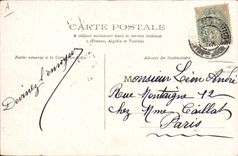 CARTE POSTALE
A utiliser seulement dans le service intérieur
(France, Algérie et Tunisie)
Adresse du Destinataire
Devinez l'envoyeur
Monsieur Léon André
Rue Montaigne 12
chez Mme Caillat
Paris